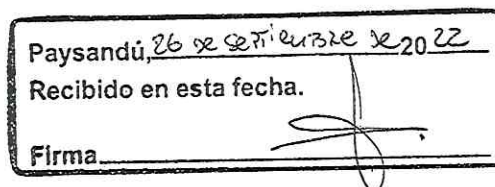 Paysandú, 26 de setiembre de 2022
Recibido en esta fecha.
Firma